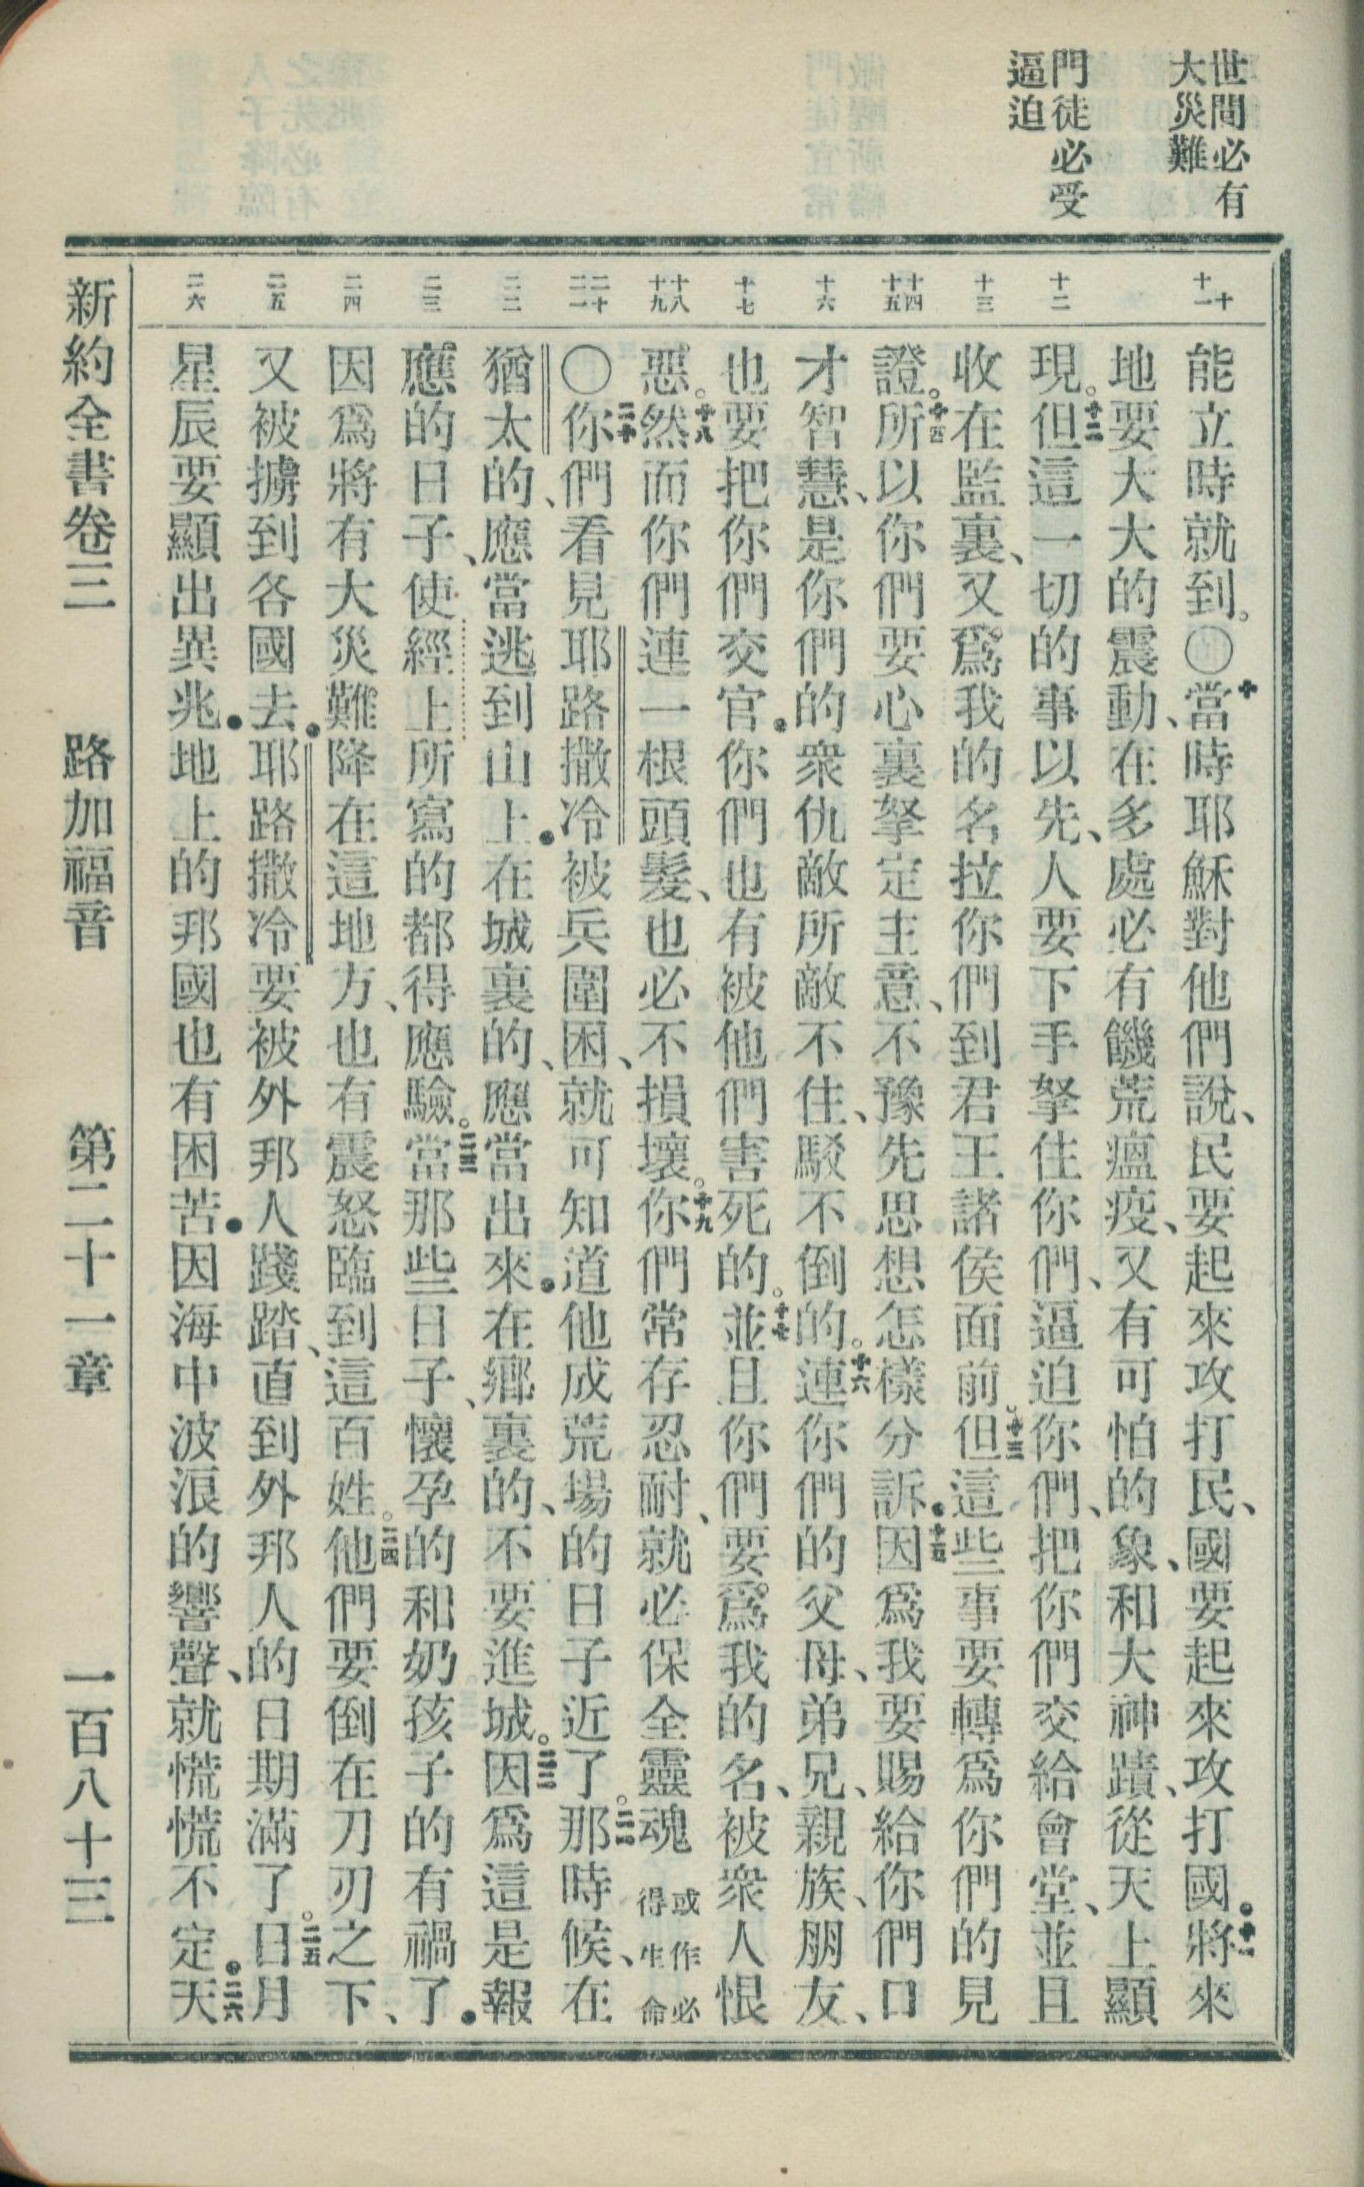 世間必有
大災難
門徒必受
逼迫
十
十一
十二
十三
十四
十五
十六
十七
十八
十九
二十
二一
二二
二三
二四
二五
二六
能立時就到。〇十當時耶穌對他們說、民要起來攻打民、國要起來攻打國．十一將來
地要大大的震動、在多處必有饑荒瘟疫、又有可怕的象、和大神蹟、從天上顯
現。十二但這一切的事以先、人要下手拏住你們、逼迫你們、把你們交給會堂、並且
收在監裏、又爲我的名拉你們到君王諸侯面前。十三但這些事要轉爲你們的見
證。十四所以你們要心裏拏定主意、不豫先思想怎樣分訴．十五因爲我要賜給你們口
才智慧、是你們的衆仇敵所敵不住、駁不倒的。十六連你們的父母、弟兄、親族、朋友、
也要把你們交官．你們也有被他們害死的。十七並且你們要爲我的名、被衆人恨
惡。十八然而你們連一根頭髮、也必不損壞。十九你們常存忍耐、就必保全靈魂或作必得生命
〇二十你們看見耶路撒冷被兵圍困、就可知道他成荒場的日子近了。二一那時候、在
猶太的、應當逃到山上．在城裏的、應當出來．在鄉裏的、不要進城。二二因爲這是報
應的日子、使經上所寫的都得應驗。二三當那些日子、懷孕的和奶孩子的有禍了．
因爲將有大災難降在這地方、也有震怒臨到這百姓。二四他們要倒在刀刃之下、
又被擄到各國去．耶路撒冷要被外邦人踐踏、直到外邦人的日期滿了。二五日月
星辰要顯出異兆．地上的邦國也有困苦．因海中波浪的響聲、就慌慌不定．二六天
新約全書卷三 路加福音 第二十一章 一百八十三